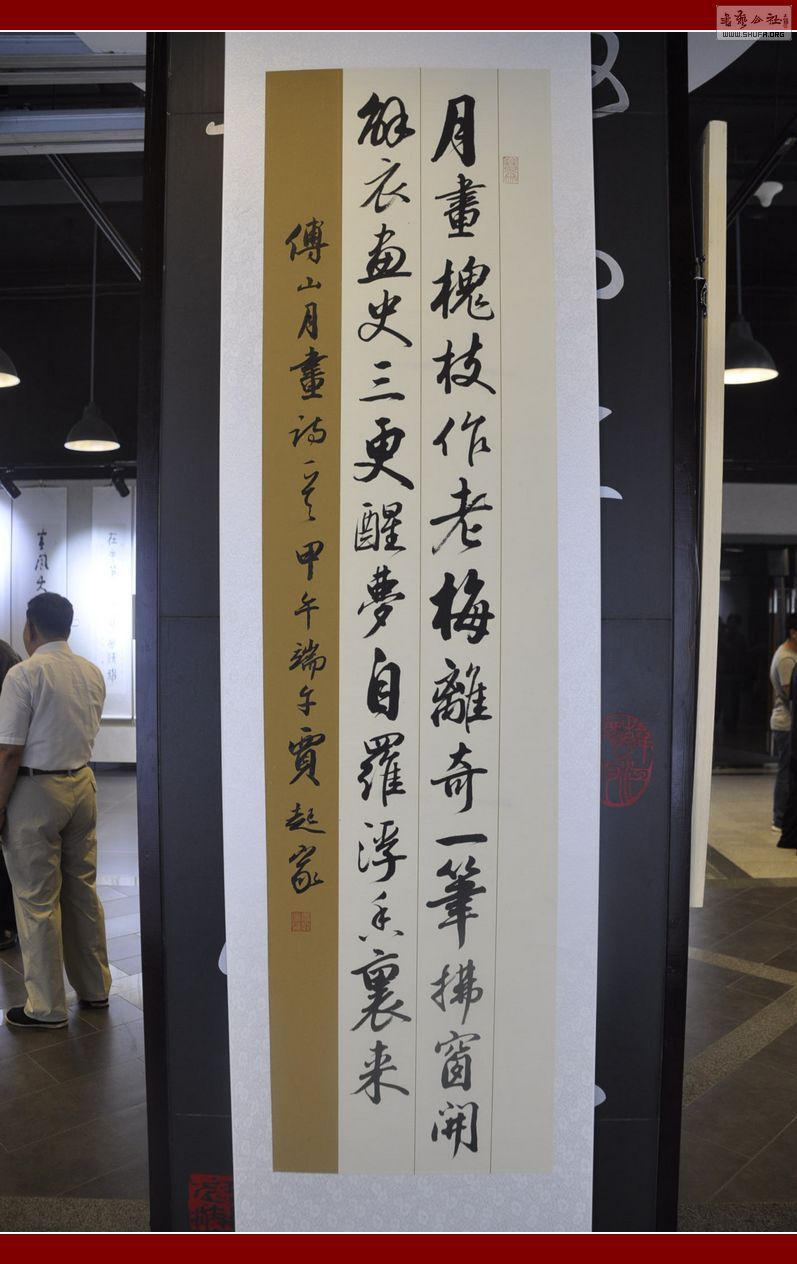 月畫槐枝作老梅離奇一筆拂窗開
解衣畫史三更醒夢自羅浮香裏来
傅山月畫诗一首甲午端午賈起家
書藝公社
WWW.SHUFA.ORG